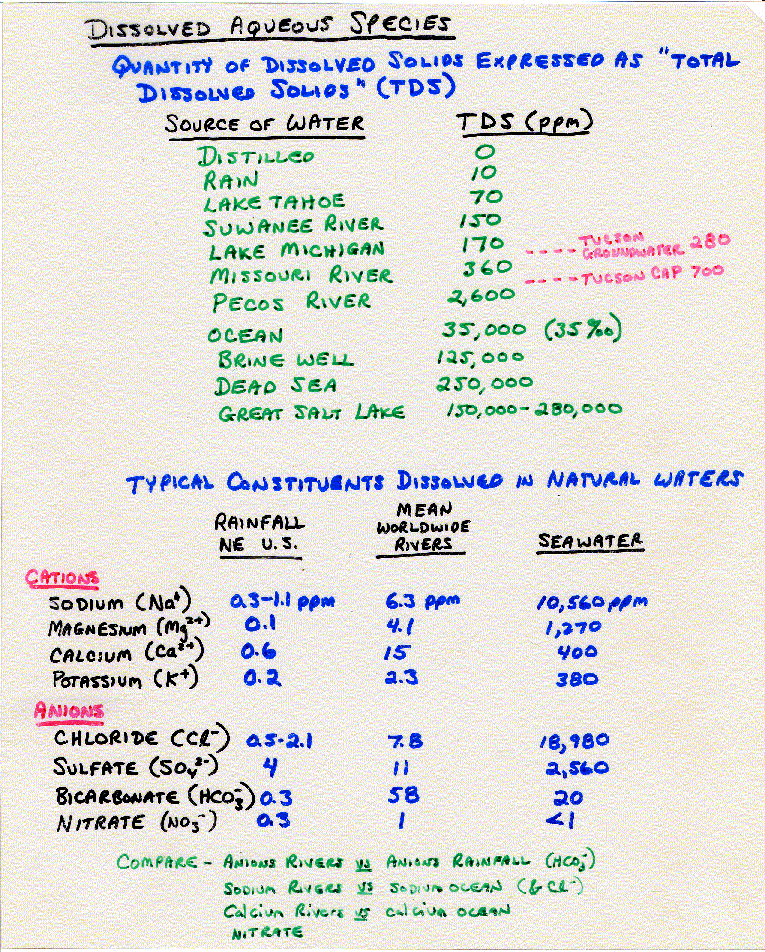 DISSOLVED AQUEOUS SPECIES
QUANTITY OF DISSOLVED SOLIDS EXPRESSED AS "TOTAL
DISSOLVED SOLIDS" (TDS)
SOURCE OF WATER TDS (ppm)
DISTILLED 0
RAIN 10
LAKE TAHOE 70
SUWANEE RIVER 150
LAKE MICHIGAN 170 ---- TUCSON GROUNDWATER 280
MISSOURI RIVER 360 ---- TUCSON CAP 700
PECOS RIVER 2,600
OCEAN 35,000 (35‰)
BRINE WELL 125,000
DEAD SEA 250,000
GREAT SALT LAKE 150,000-280,000
TYPICAL CONSTITUENTS DISSOLVED IN NATURAL WATERS
RAINFALL NE U.S. MEAN WORLDWIDE RIVERS SEAWATER
CATIONS
SODIUM (Na⁺) 0.3-1.1 ppm 6.3 ppm 10,560 ppm
MAGNESIUM (Mg²⁺) 0.1 4.1 1,270
CALCIUM (Ca²⁺) 0.6 15 400
POTASSIUM (K⁺) 0.2 2.3 380
ANIONS
CHLORIDE (Cl⁻) 0.5-2.1 7.8 18,980
SULFATE (SO₄²⁻) 4 11 2,560
BICARBONATE (HCO₃⁻) 0.3 58 20
NITRATE (NO₃⁻) 0.3 1 <1
COMPARE - ANIONS RIVERS VS ANIONS RAINFALL (HCO₃⁻)
SODIUM RIVERS VS SODIUM OCEAN (& Cl⁻)
Calcium Rivers vs calcium OCEAN
NITRATE